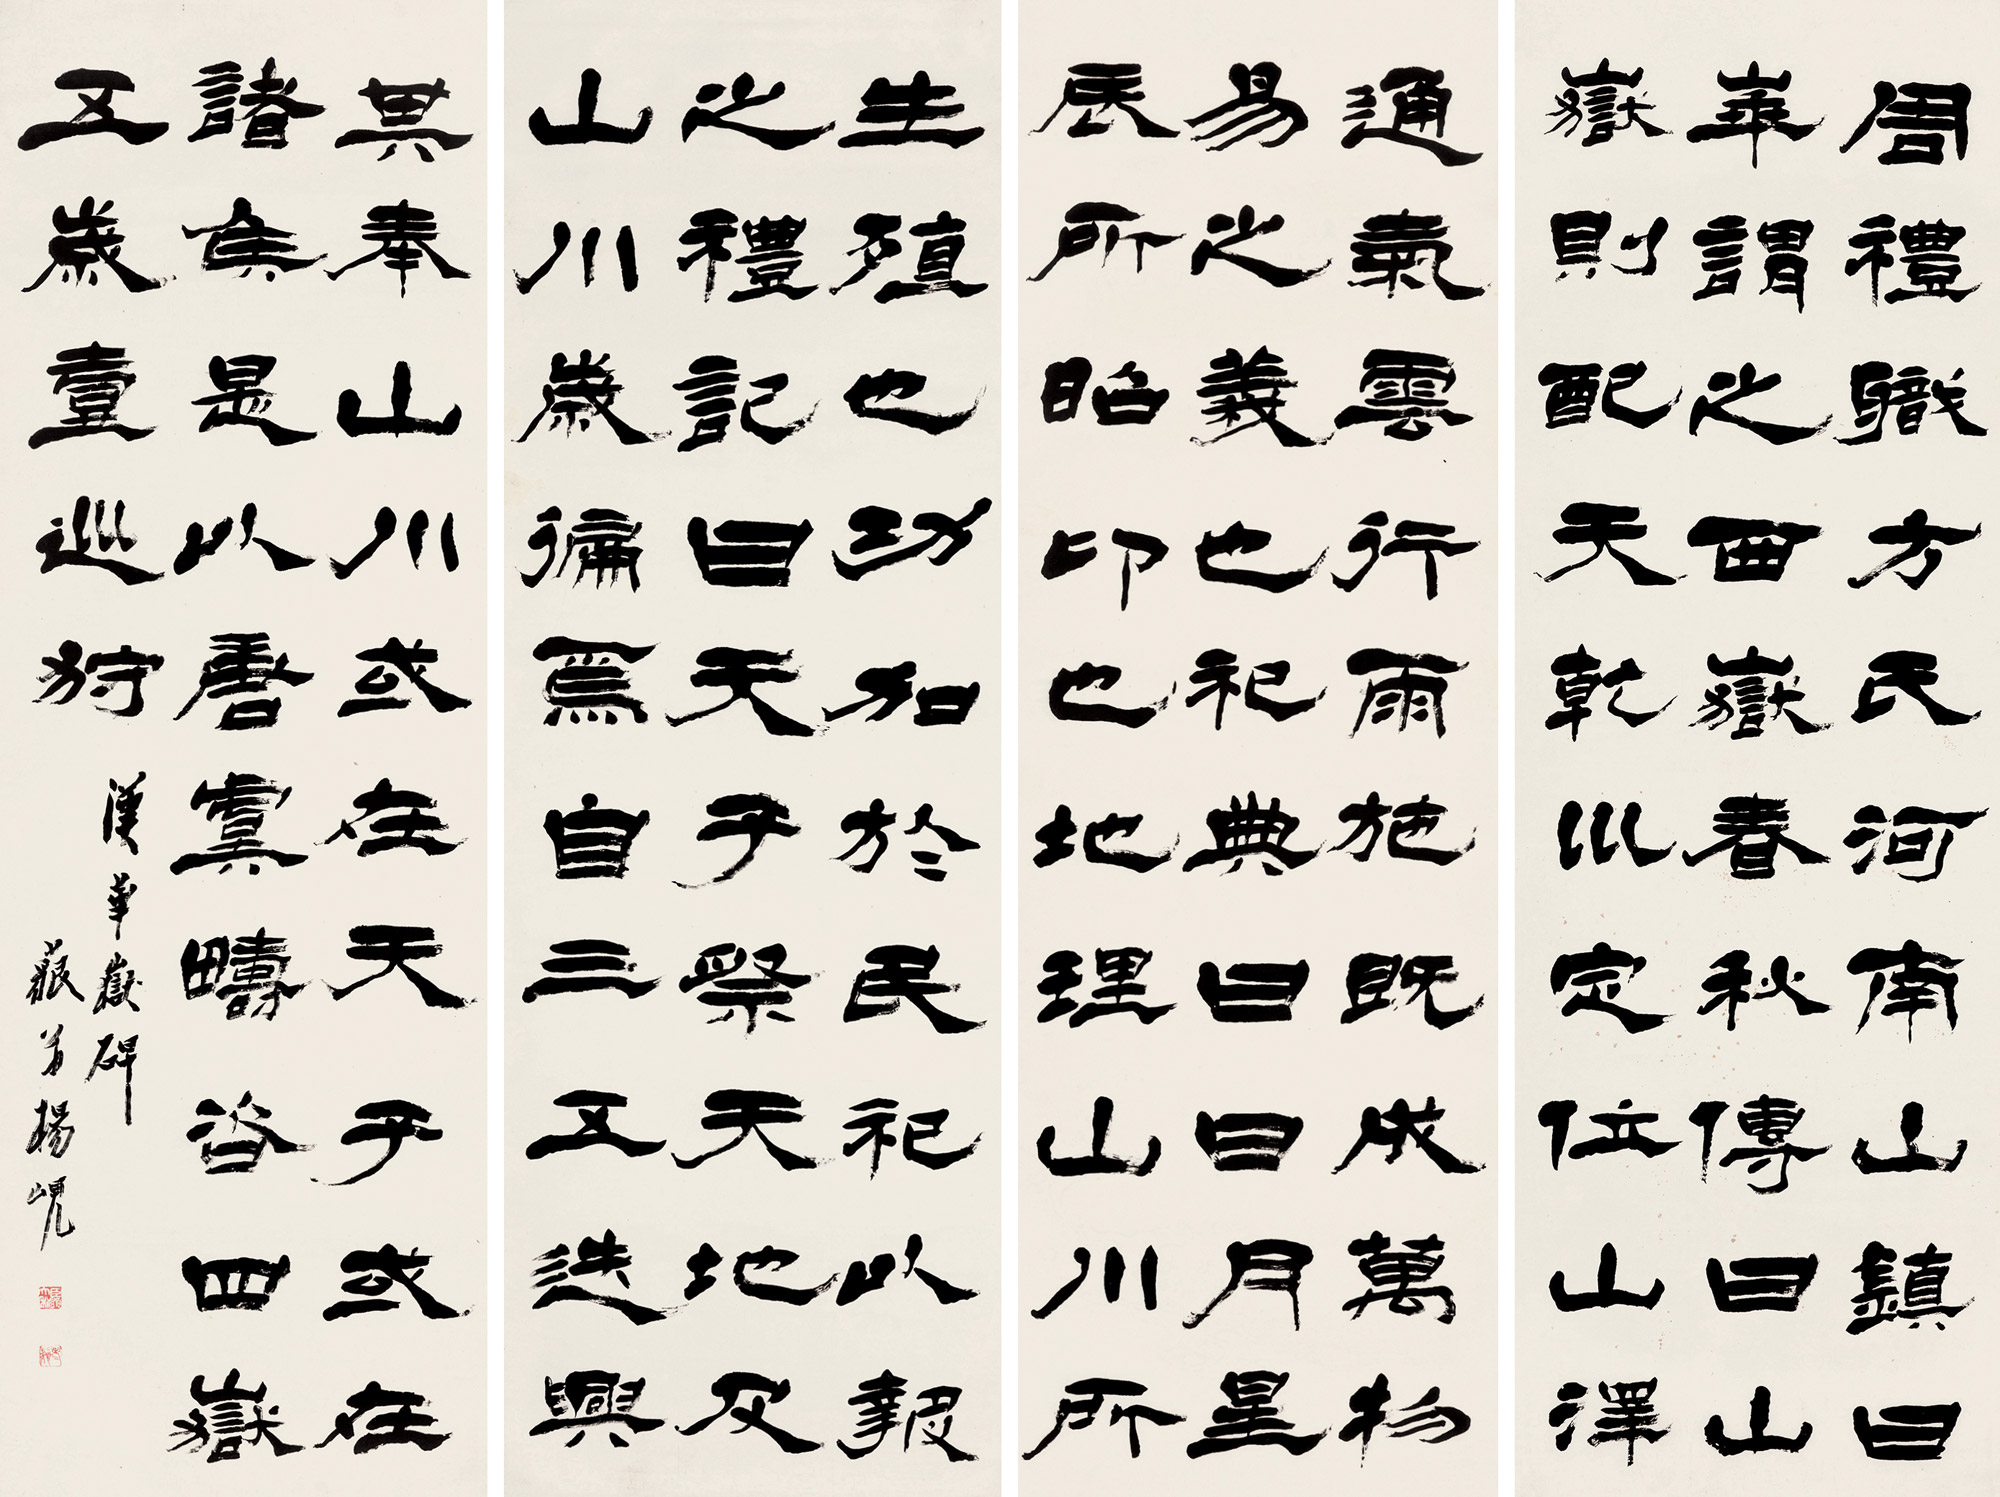 周禮職方氏河南山鎮曰
華謂之西嶽春秋傳曰山
嶽則配天乾巛定位山澤
通氣雲行雨施既成萬物
易之義也祀典曰日月星
辰所昭卬也地理山川所
生殖也功加於民祀以報
之禮記曰天子祭天地及
山川歲徧焉自三五迭興
其奉山川或在天子或在
諸矦是以唐虞疇咨四嶽
五歲壹巡狩
漢華嶽碑
藐翁楊峴